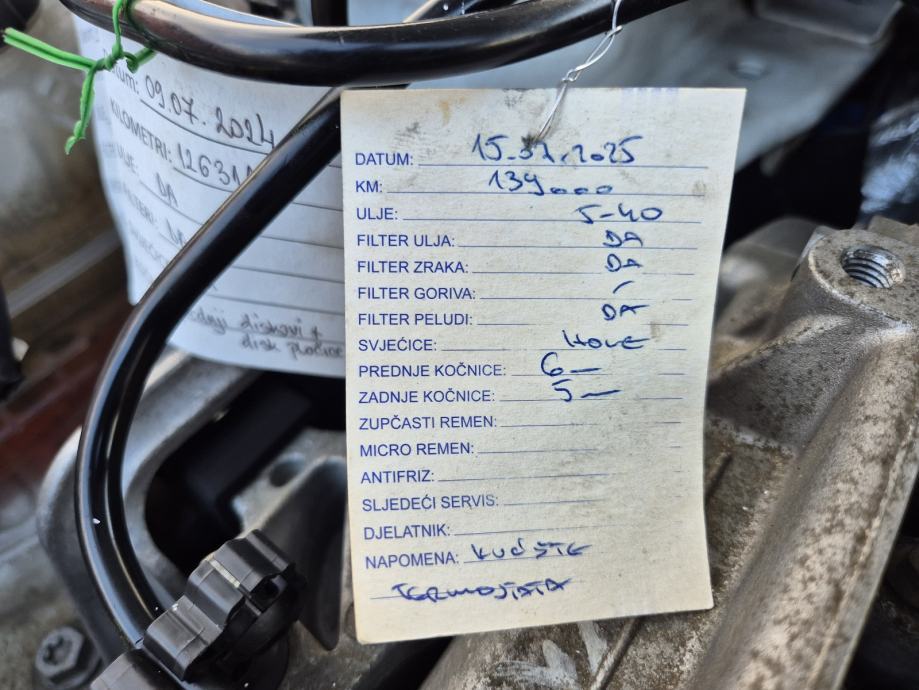 Datum: 09.07.2024
KILOMETRI:
ULJE: DA
diskovi +
disk pločice
DATUM: 15.07.2025
KM: 139000
ULJE: 5-40
FILTER ULJA: DA
FILTER ZRAKA: DA
FILTER GORIVA: -
FILTER PELUDI: DA
SVJEĆICE: NOVE
PREDNJE KOČNICE: 6-
ZADNJE KOČNICE: 5-
ZUPČASTI REMEN:
MICRO REMEN:
ANTIFRIZ:
SLJEDEĆI SERVIS:
DJELATNIK:
NAPOMENA: KUĆIŠTE
TERMOSTATA